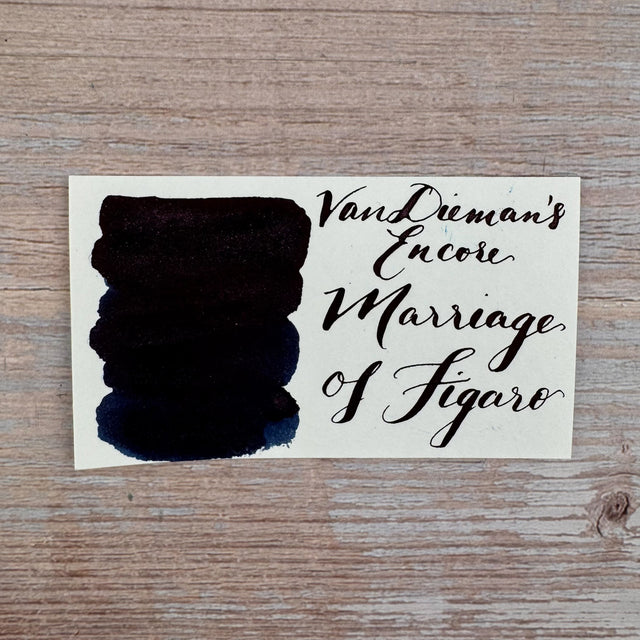 VanDieman's
Encore
Marriage
of Figaro